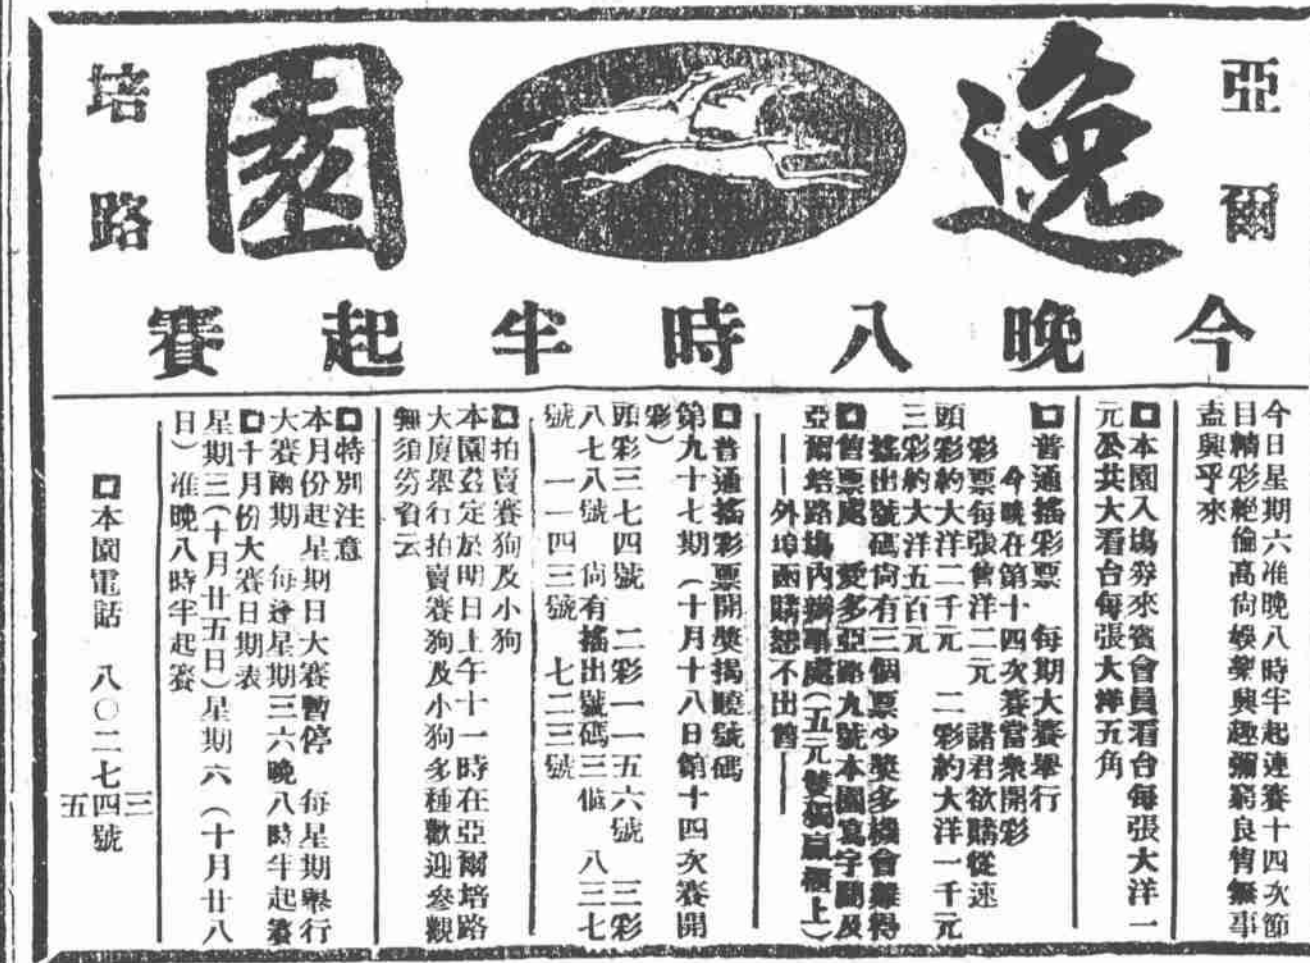 亞爾
逸園
培路
今晚八時半起賽
今日星期六准晚八時半起連賽十四次節
目精彩絕倫高尚娛樂興趣彌窮良宵無事
盍興乎來
本園入塲券來賓會員看台每張大洋一
元公共大看台每張大洋五角
普通搖彩票 每期大賽舉行
今晚在第十四次賽當衆開彩
彩票每張售洋二元 諸君欲購從速
頭彩約大洋二千元 二彩約大洋一千元
三彩約大洋五百元
搖出號碼尙有三個票少獎多機會難得
售票處 愛多亞路九號本園寫字間及
亞爾培路塲內辦事處(五元雙獨贏櫃上)
——外埠函購恕不出售——
普通搖彩票開獎揭曉號碼
第九十七期(十月十八日舘十四次賽開
彩)
頭彩三七四號 二彩一一五六號 三彩
八七八號 尙有搖出號碼三個 八三七
號 一一四三號 七二三號
拍賣賽狗及小狗
本園茲定於明日上午十一時在亞爾培路
大厦舉行拍賣賽狗及小狗多種歡迎參觀
無須券資云
特別注意
本月份起星期日大賽暫停 每星期舉行
大賽兩期 每逢星期三六晚八時半起賽
十月份大賽日期表
星期三(十月廿五日)星期六(十月廿八
日)准晚八時半起賽
本園電話 八〇二七三四五號